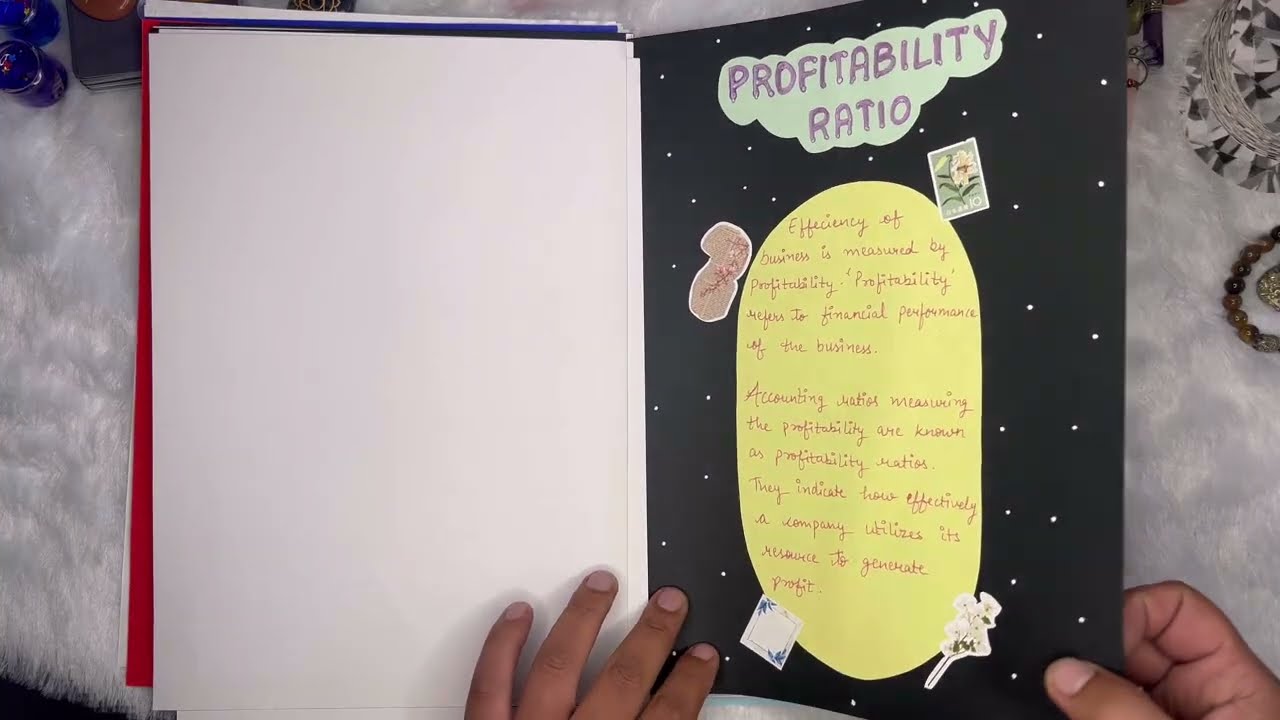 PROFITABILITY
RATIO
Effeciency of
business is measured by
Profitability. 'Profitability'
refers to financial performance
of the business.
Accounting ratios measuring
the profitability are known
as profitability ratios.
They indicate how effectively
a company utilizes its
resource to generate
profit.
10